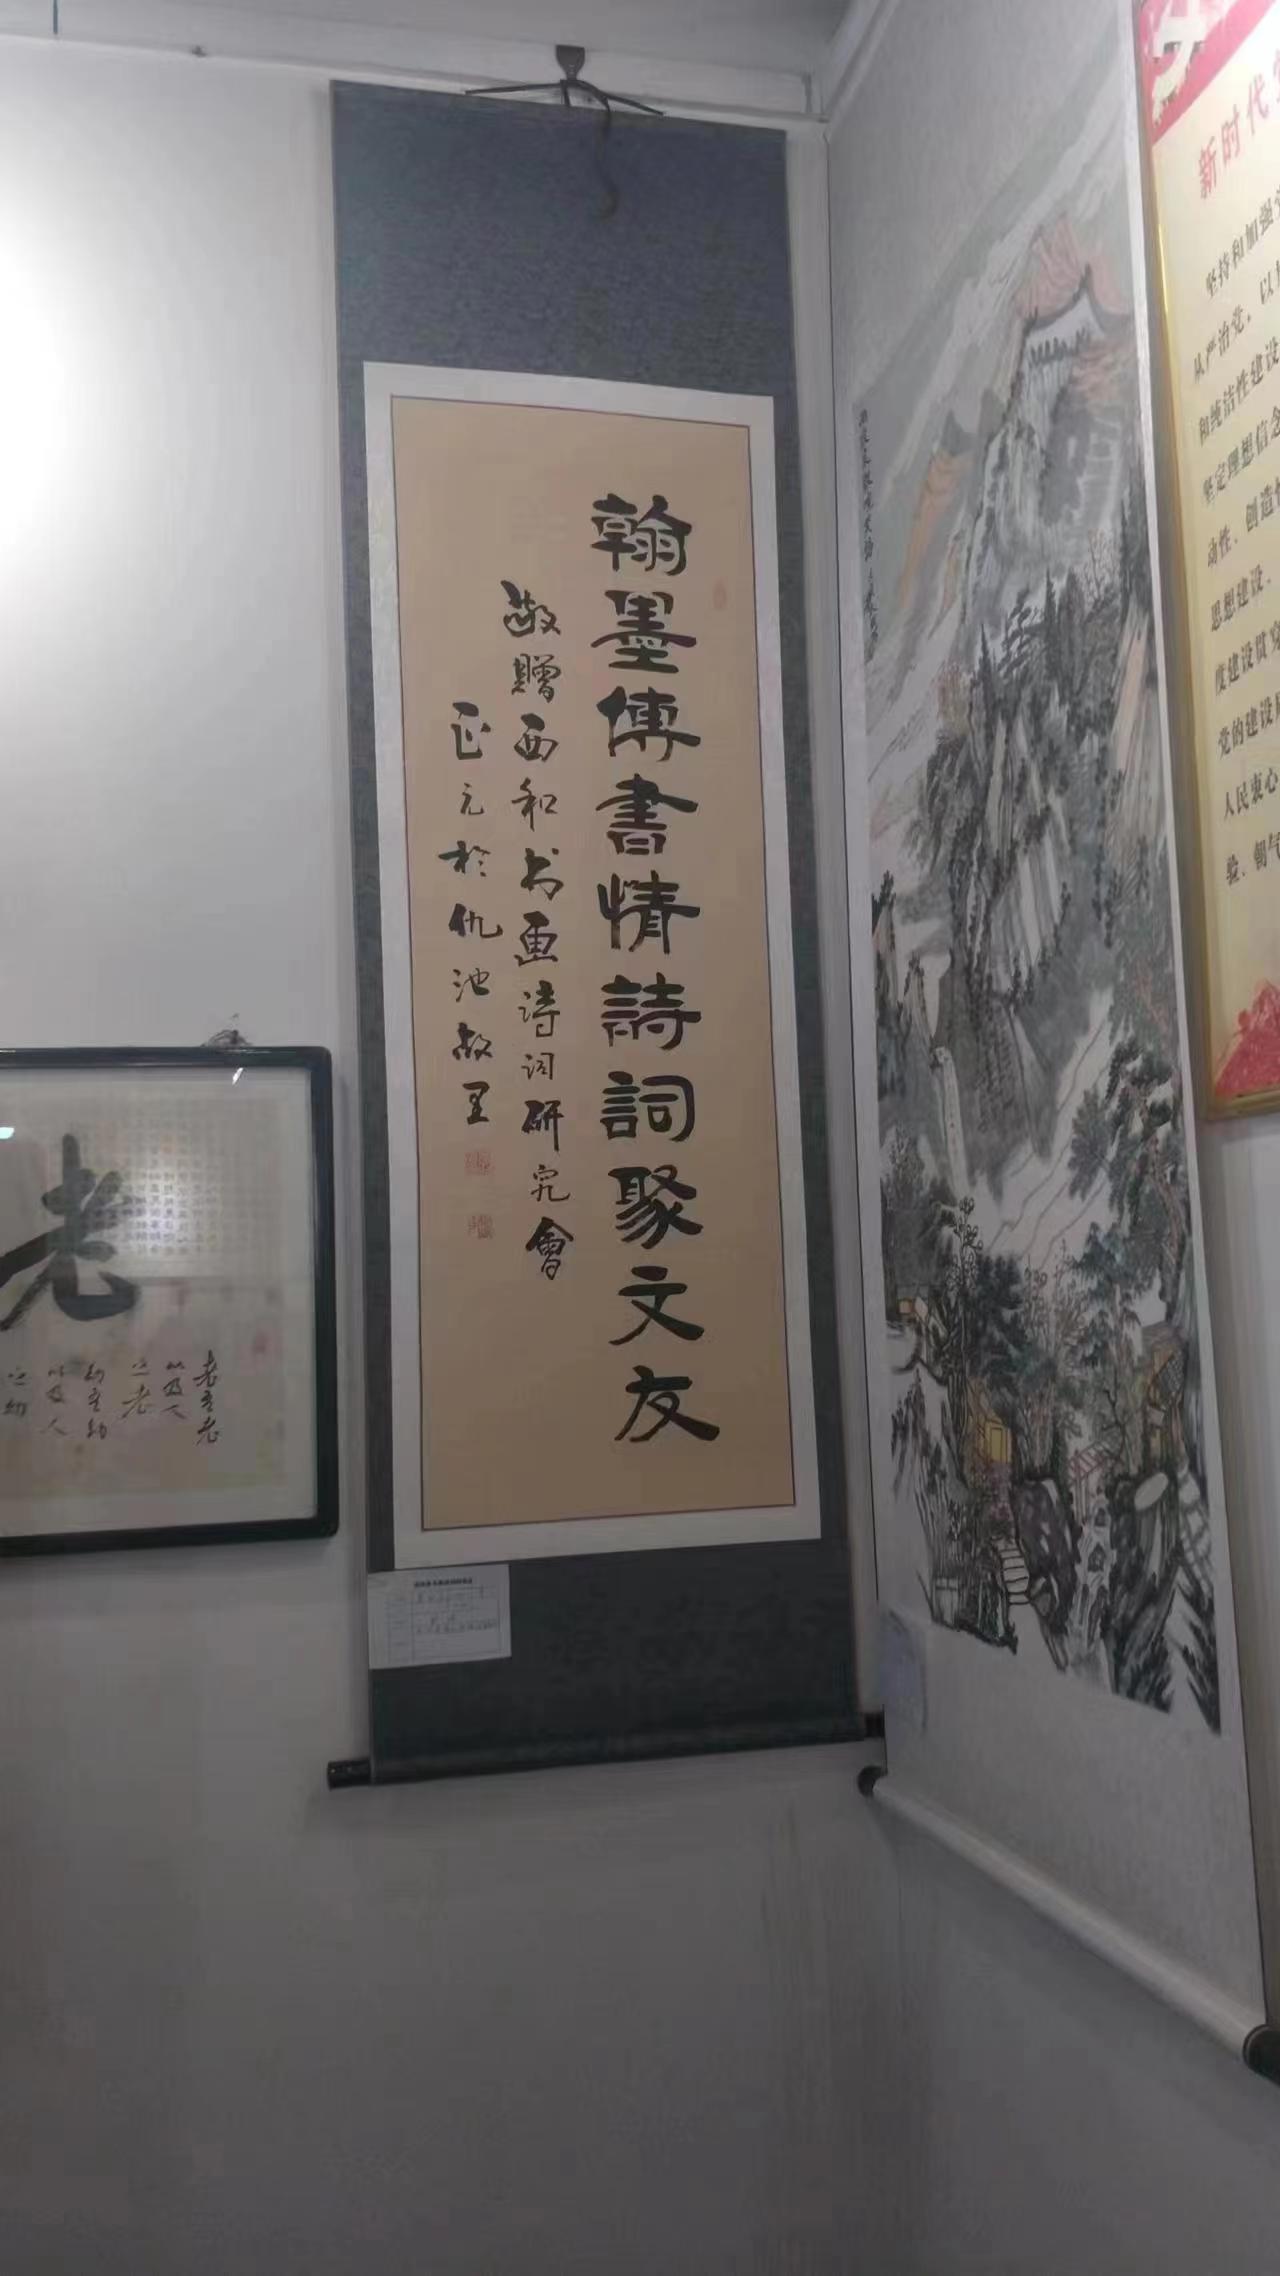 翰墨傳書情詩詞聚文友
敬贈西和书画诗词研究會
正元於仇池故里
老
老吾老
以及人
之老
幼吾幼
以及人
之幼
新时代党
坚持和加强党
从严治党，以
和统洁性建设
坚定理想信念
动性、创造性
思想建设、
度建设贯穿
党的建设
人民衷心
验、朝气